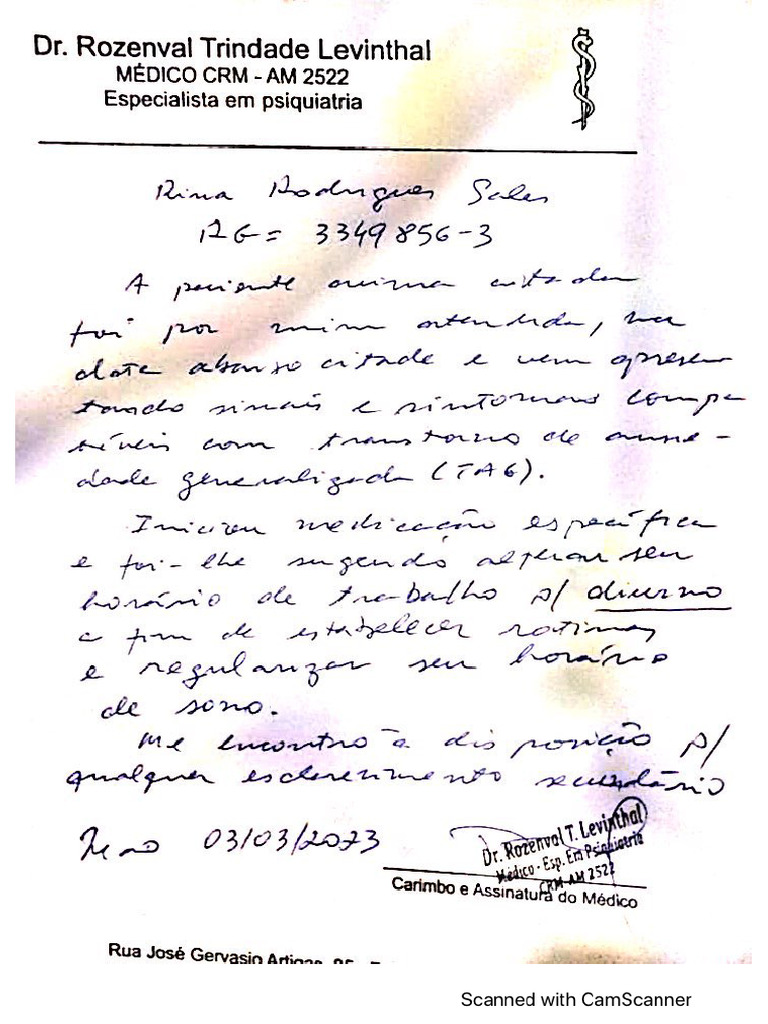 Dr. Rozenval Trindade Levinthal
MÉDICO CRM - AM 2522
Especialista em psiquiatria
Rina Rodrigues Sales
RG = 3349856-3
A paciente acima citada
foi por mim atendida, na
data abaixo citada e vem apresen
tando sinais e sintomas compa
tíveis com transtorno de ansie-
dade generalizada (TAG).
Iniciou medicação específica
e foi-lhe sugerido alterar seu
horário de trabalho p/ diurno
a fim de estabelecer rotinas
e regularizar seu horário
de sono.
Me encontro à disposição p/
qualquer esclarecimento secundário
03/03/2023
Dr. Rozenval T. Levinthal
Médico - Esp. Em Psiquiatria
CRM-AM 2522
Carimbo e Assinatura do Médico
Rua José Gervasio Artigas
Scanned with CamScanner